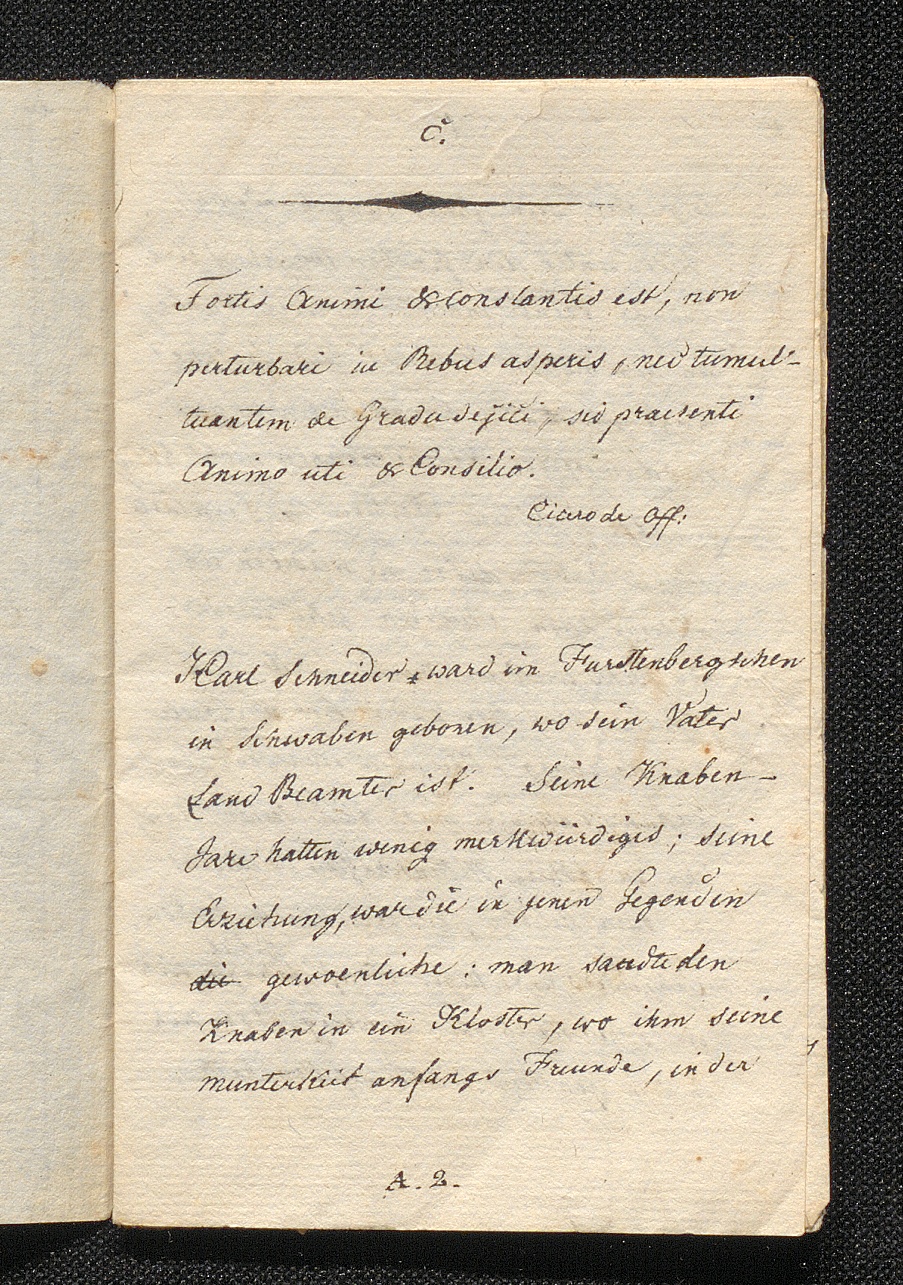 C.
Fortis Animi & constantis est, non
perturbari in Rebus asperis, nec tumul-
tuantem de Gradu dejici, sed praesenti
Animo uti & Consilio.
Cicero de Off:
Karl Schneider ward im Furstenbergschen
in Schwaben geboren, wo sein Vater
Land Beamter ist. Seine Knaben-
Jare hatten wenig merkwürdiges; seine
Erziehung, war die in jenen Gegenden
die gewoenliche: man sandte den
Knaben in ein Kloster, wo ihm seine
munterkeit anfangs Freunde, in der
A. 2.